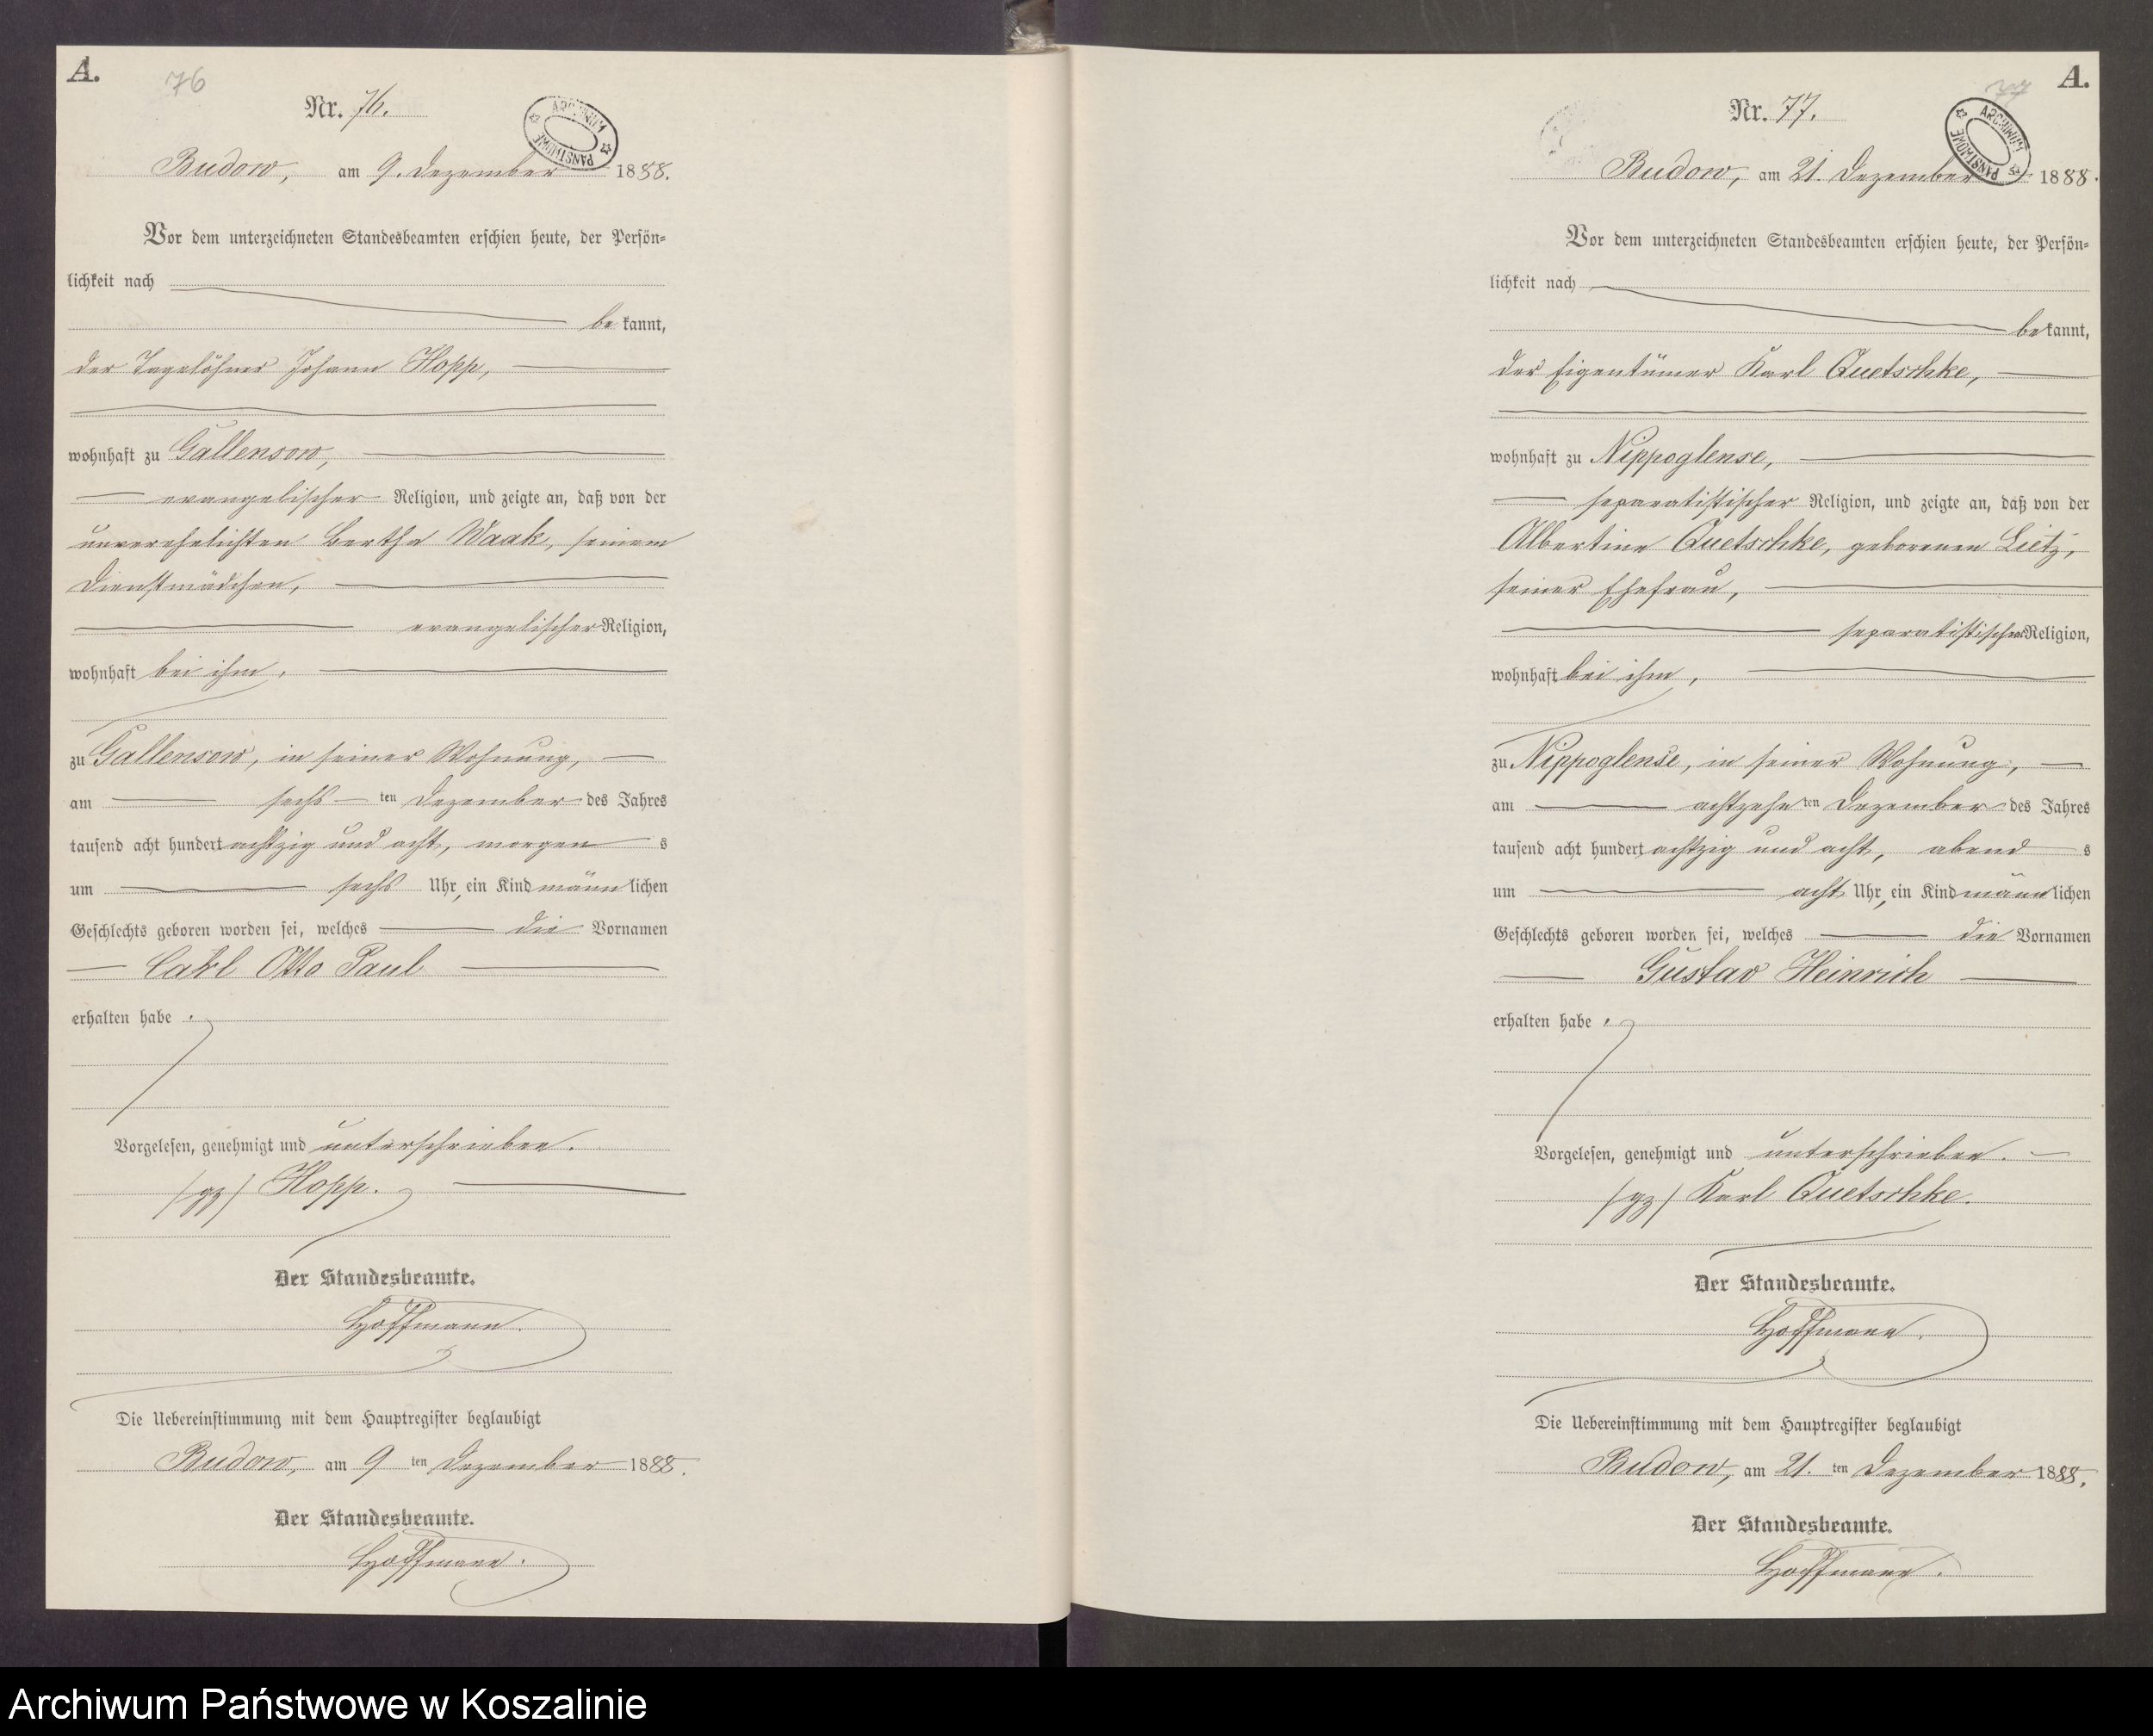 A.
76
Nr. 76.
ARCHIWUM PAŃSTWOWE
Budow, am 9. Dezember 1888.
Vor dem unterzeichneten Standesbeamten erschien heute, der Persön-
lichkeit nach
bekannt,
der Tagelöhner Johann Hopp,
wohnhaft zu Gallensow,
evangelischer Religion, und zeigte an, daß von der
unverehelichten Bertha Waak, seinem
Dienstmädchen,
evangelischer Religion,
wohnhaft bei ihm,
zu Gallensow, in seiner Wohnung,
am sechsten Dezember des Jahres
tausend acht hundert achtzig und acht, morgens
um sechs Uhr, ein Kind männlichen
Geschlechts geboren worden sei, welches die Vornamen
Carl Otto Paul
erhalten habe.
Vorgelesen, genehmigt und unterschrieben.
/gz/ Hopp.
Der Standesbeamte.
Hoffmann.
Die Uebereinstimmung mit dem Hauptregister beglaubigt
Budow, am 9ten Dezember 1888.
Der Standesbeamte.
Hoffmann.
A.
77
Nr. 77.
ARCHIWUM PAŃSTWOWE
Budow, am 21. Dezember 1888.
Vor dem unterzeichneten Standesbeamten erschien heute, der Persön-
lichkeit nach
bekannt,
der Eigentümer Karl Quetschke,
wohnhaft zu Nippoglense,
separatistischer Religion, und zeigte an, daß von der
Albertine Quetschke, geborenen Lietz,
seiner Ehefrau,
separatistischer Religion,
wohnhaft bei ihm,
zu Nippoglense, in seiner Wohnung,
am achtzehnten Dezember des Jahres
tausend acht hundert achtzig und acht, abends
um acht Uhr, ein Kind männlichen
Geschlechts geboren worden sei, welches die Vornamen
Gustav Heinrich
erhalten habe.
Vorgelesen, genehmigt und unterschrieben.
/gz/ Karl Quetschke.
Der Standesbeamte.
Hoffmann.
Die Uebereinstimmung mit dem Hauptregister beglaubigt
Budow, am 21.ten Dezember 1888.
Der Standesbeamte.
Hoffmann.
Archiwum Państwowe w Koszalinie